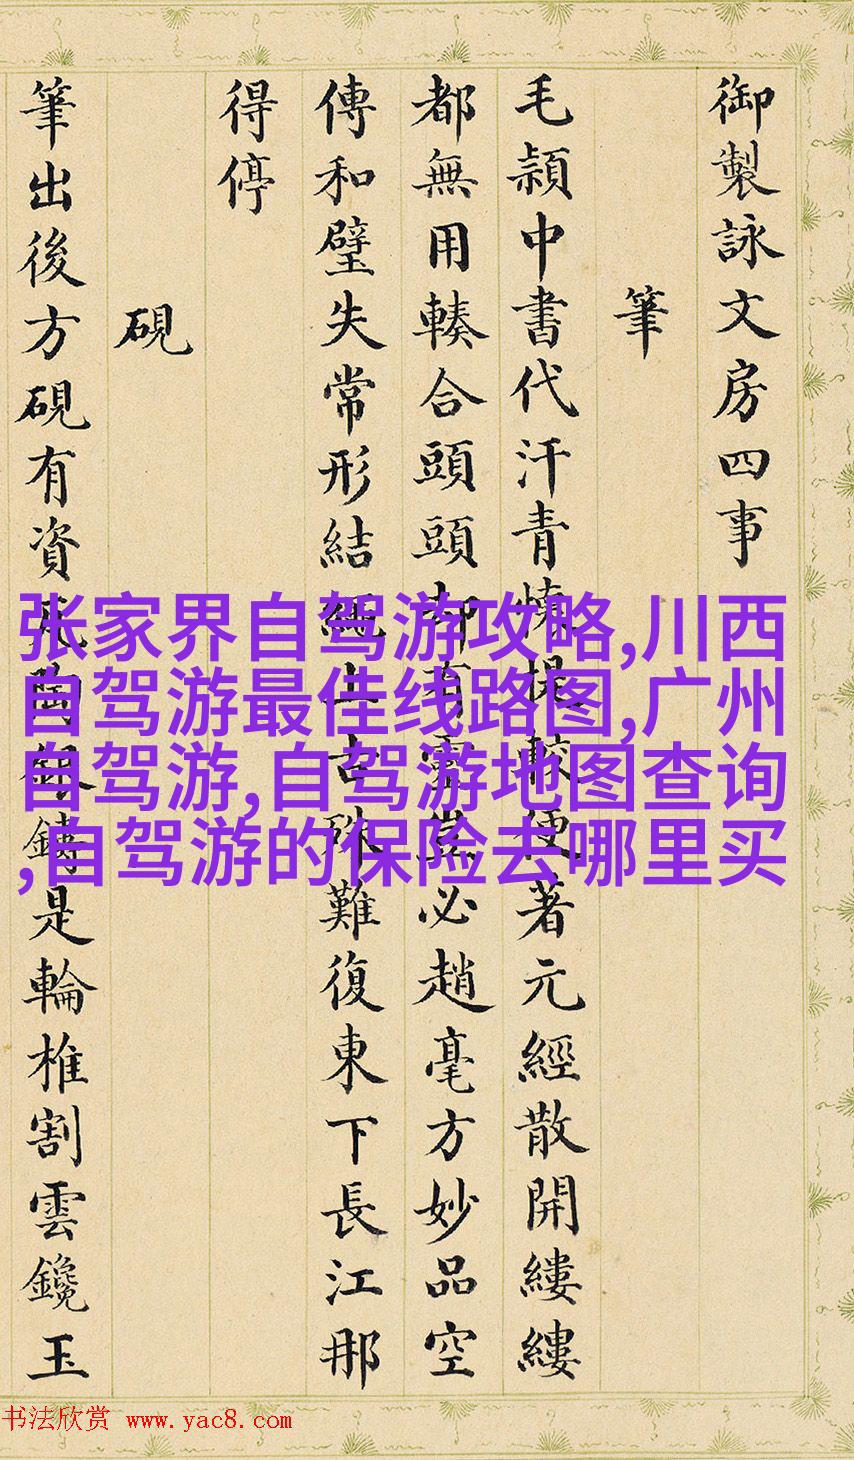 御製詠文房四事
筆
毛穎中書代汗青慄提較便著元經散開縷縷
都無用輳合頭頭却有靈豈必趙毫方妙品空
傳和璧失常形結繩上古殊難復東下長江那
得停
硯
筆出後方硯有資瓦陶銀鑄是輪椎割雲鑱玉
张家界自驾游攻略,川西
自驾游最佳线路图,广州
自驾游,自驾游地图查询
,自驾游的保险去哪里买
书法欣赏 www.yac8.com